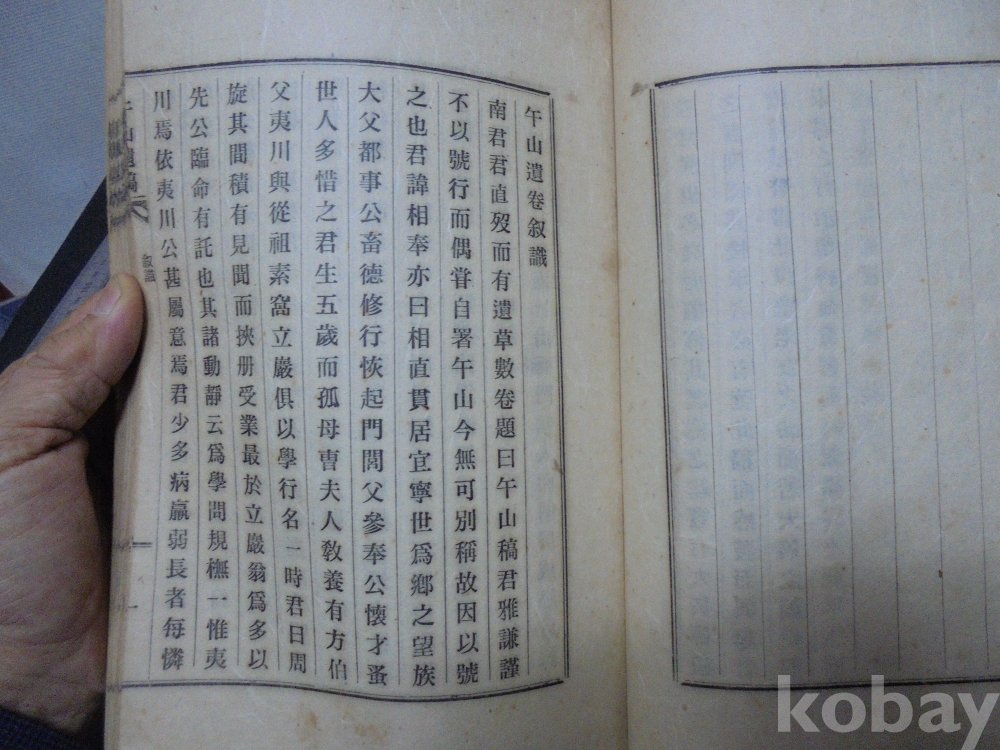 午山遺卷叙識
南君君直歿而有遺草數卷題曰午山稿君雅謙謹
不以號行而偶甞自署午山今無可別稱故因以號
之也君諱相奉亦曰相直貫居宜寧世爲鄕之望族
大父都事公畜德修行恢起門閭父參奉公懷才蚤
世人多惜之君生五歲而孤母曺夫人敎養有方伯
父夷川與從祖素窩立巖俱以學行名一時君日周
旋其間積有見聞而挾册受業最於立巖翁爲多以
先公臨命有託也其諸動靜云爲學問規橅一惟夷
川焉依夷川公甚屬意焉君少多病羸弱長者每憐
午山遺稿
叙識
kobay